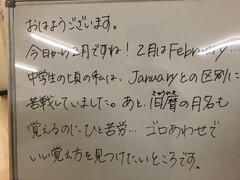 おはようございます。
今日から2月ですね！2月はFebruary…
中学生の頃の私は、Januaryとの区別に
苦戦していました。あと、旧暦の月名も
きゅうれき
覚えるのにひと苦労…ゴロあわせで
いい覚え方を見つけたいところです。